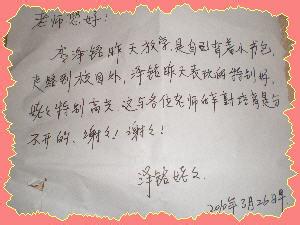 老师您好:
李泽铭昨天放学是自己背着小书包
走路到校门外,泽铭昨天表现的特别好,
姥々特别高兴,这与各位老师的辛勤培育是分
不开的,谢々!谢々!
泽铭姥々
2010年3月26日早